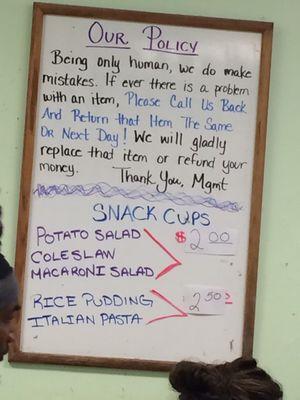 Our Policy
Being only human, we do make
mistakes. If ever there is a problem
with an item, Please Call Us Back
And Return that Item The Same
Or Next Day! We will gladly
replace that item or refund your
money. Thank You, Mgmt
SNACK CUPS
POTATO SALAD
COLESLAW
MACARONI SALAD
$2.00
RICE PUDDING
ITALIAN PASTA
2.50